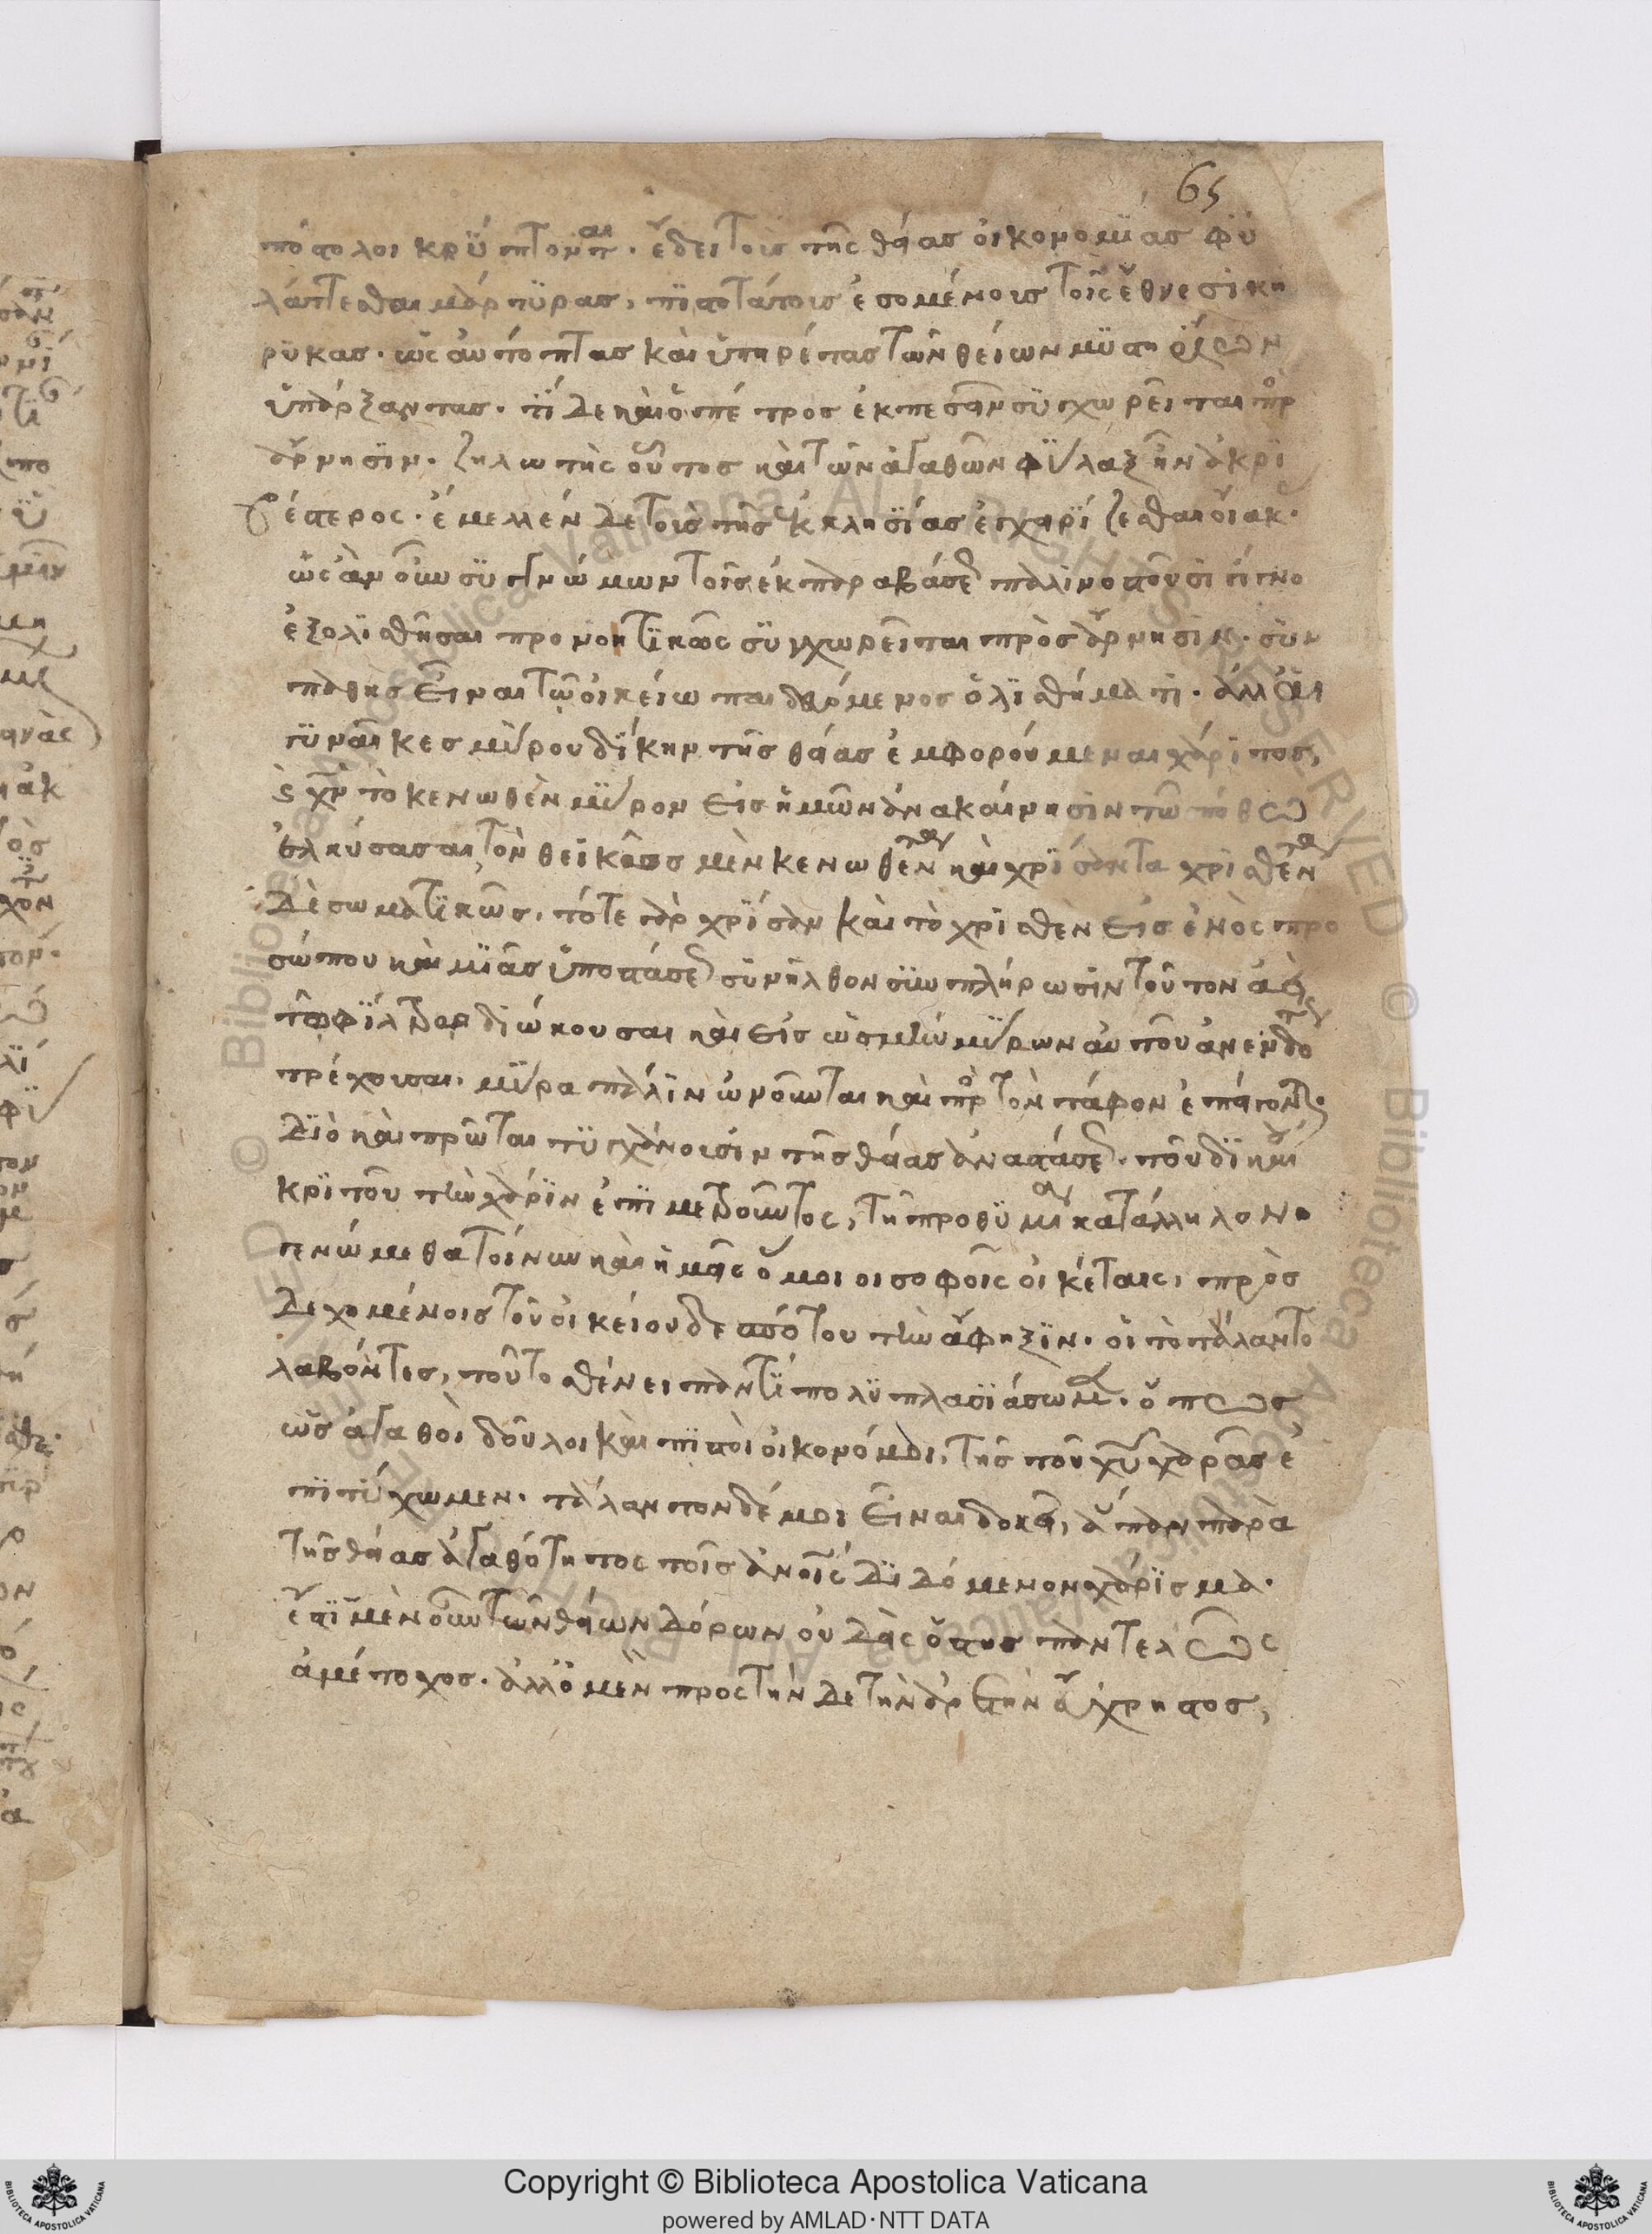 65
πόστολοι κρύπτονται. ἔδει τοὺς τῆς θείας οἰκονομίας φυ
λάττεσθαι μάρτυρας, πιστοτάτους ἐσομένους τοῖς ἔθνεσι κή
ρυκας. ὡς αὐτόπτας καὶ ὑπηρέτας τῶν θείων μυστηρίων
ὑπάρξαντας. τί δε καὶ ὁ πέτρος ἐκπεσεῖν συγχωρεῖται πρ
ἄρνησιν. ζηλωτὴς οὗτος καὶ τῶν ἀγαθῶν φύλαξ ἦν ἀκρι
βέστερος. ἔμελλεν δε τοὺς τῆς ἐκκλησίας ἐγχειρίζεσθαι οἴακ.
ὡς ἂν οὖν συγγνώμων τοῖς ἐκ παραβάσε πάλιν οποῦσι γένο
ἐξολισθῆσαι προνοητικῶς συγχωρεῖται πρὸς ἄρνησιν. συμ
παθὴς εἶναι τῶ οἰκείω παιδευόμενος ὀλισθήματι. ἀλλ' αἱ
γυναῖκες μύρου δίκην τῆς θείας ἐμφορούμεναι χάριτος,
τὸ κενωθὲν μύρον εἰς ἡμῶν ἀνακαίνησιν τῶ πόθω
ἑλκύσασαι, τὸν θεϊκῶς μὲν κενωθέντα καὶ χρίσαντα χρισθέντα
δὲ σωματικῶς, τότε γὰρ χρίσαν καὶ τὸ χρισθὲν εἰς ἑνὸς προ
σώπου καὶ μιᾶς ὑποστάσε συνῆλθον συμπλήρωσιν τοῦτον
διώκουσαι καὶ εἰς ὀσμὴν μύρων αὐτοῦ ἀνενδό
τρέχουσαι. μύρα πάλιν ὠνοῦνται καὶ πρ τὸν τάφον ἐπείγονται.
διὸ καὶ πρῶται τυγχάνουσιν τῆς θείας ἀναστάσε. τοῦ δικαι
κριτοῦ τὴν χάριν ἐπιμετροῦντος, τῇ προθυμία κατάλληλον.
γενώμεθα τοίνυν καὶ ἡμεῖς ὅμοιοι σοφοῖς οἰκέταις, προσ
δεχομένοις τοῦ οἰκείου δεσπότου τὴν ἄφηξιν. οἱ τὸ τάλαντο
λαβόντες, τοῦτο σθένει παντὶ πολυπλασιάσωμεν. ὅπως
ὡς ἀγαθοὶ δοῦλοι καὶ πιστοὶ οἰκονόμοι, τῆς τοῦ χυ χαρᾶς ἐ
πιτύχωμεν. τάλαντον δέ μοι εἶναι δοκεῖ, ἅπαν παρὰ
τῆς θείας ἀγαθότητος τοῖς ἀνοις διδόμενον χάρισμα.
ἔστι μὲν οὖν τῶν θείων δώρων οὐδεὶς ὅστις παντελῶς
ἀμέτοχος. ἀλλ' ὁ μὲν πρὸς τήνδε τὴν ἀρετὴν εὔχρηστος,
Copyright © Biblioteca Apostolica Vaticana
powered by AMLAD·NTT DATA